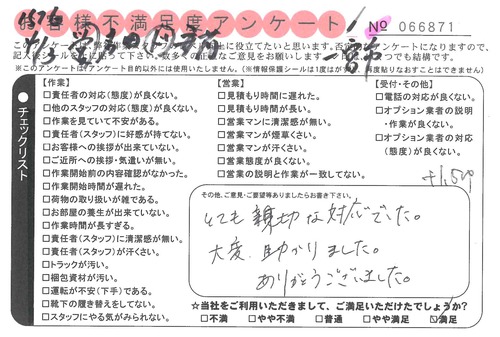 お客様不満足度アンケート
№ 066871
※このアンケートは
【作業】
□責任者の対応(態度)が良くない。
□他のスタッフの対応(態度)が良くない。
□作業を見ていて不安がある。
□責任者(スタッフ)に好感が持てない。
□お客様への挨拶が出来ていない。
□ご近所への挨拶・気遣いが無い。
□作業開始前の内容確認がなかった。
□作業開始時間が遅れた。
□荷物の取り扱いが雑である。
□お部屋の養生が出来ていない。
□作業時間が長すぎる。
□責任者(スタッフ)に清潔感が無い。
□責任者(スタッフ)が汗くさい。
□トラックが汚い。
□梱包資材が汚い。
□運転が不安(下手)である。
□靴下の履き替えをしてない。
□スタッフにやる気がみられない。
【営業】
□見積もり時間に遅れた。
□見積もり時間が長い。
□営業マンに清潔感が無い。
□営業マンが煙草くさい。
□営業マンが汗くさい。
□営業態度が良くない。
□営業の説明と作業が一致してない。
【受付・その他】
□電話の対応が良くない。
□オプション業者の説明
・作業が良くない。
□オプション業者の対応
(態度)が良くない。
●チェックリスト
その他、ご意見・ご要望等ありましたらお書き下さい。
とても親切な対応でした。
大変、助かりました。
ありがとうございました。
☆当社をご利用いただきまして、ご満足いただけたでしょうか?
□不満 □やや不満 □普通 □やや満足 ☑満足